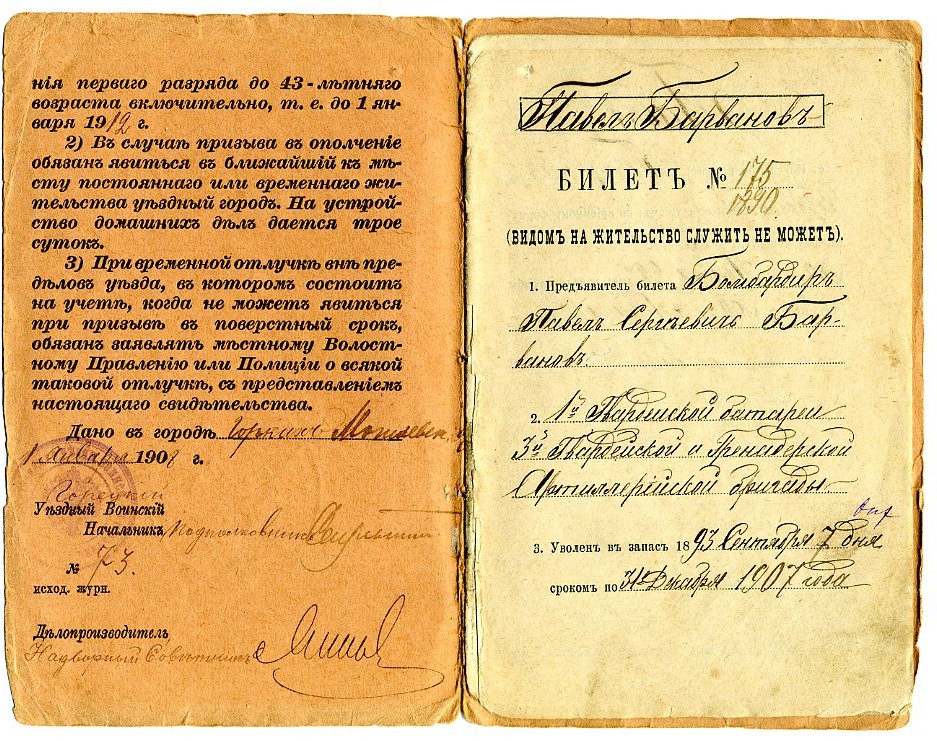 нія перваго разряда до 43-лѣтняго
возраста включительно, т. е. до 1 ян-
варя 1912 г.
2) Въ случаѣ призыва въ ополченіе
обязанъ явиться въ ближайшій къ мѣ-
сту постояннаго или временнаго жи-
тельства уѣздный городъ. На устрой-
ство домашнихъ дѣлъ дается трое
сутокъ.
3) При временной отлучкѣ внѣ пре-
дѣловъ уѣзда, въ которомъ состоитъ
на учетѣ, когда не можетъ явиться
при призывѣ въ поверстный срокъ,
обязанъ заявлять мѣстному Волост-
ному Правленію или Полиціи о всякой
таковой отлучкѣ, съ представленіемъ
настоящаго свидѣтельства.
Дано въ городѣ Горкахъ
1 Января 1908 г.
Горецкій
Уѣздный Воинскій
Начальникъ, Подполковникъ
№ 73.
исход. журн.
Дѣлопроизводитель
Надворный Совѣтникъ
Павелъ Барвановъ
БИЛЕТЪ № 175
1890.
(ВИДОМЪ НА ЖИТЕЛЬСТВО СЛУЖИТЬ НЕ МОЖЕТЪ).
1. Предъявитель билета Бомбардиръ
Павелъ Сергѣевичъ Бар-
вановъ
2. 1й Гвардейской батареи
3й Гвардейской и Гренадерской
Артиллерійской бригады
3. Уволенъ въ запасъ 1893 Сентября 7 дня
срокомъ по 31е Декабря 1907 года